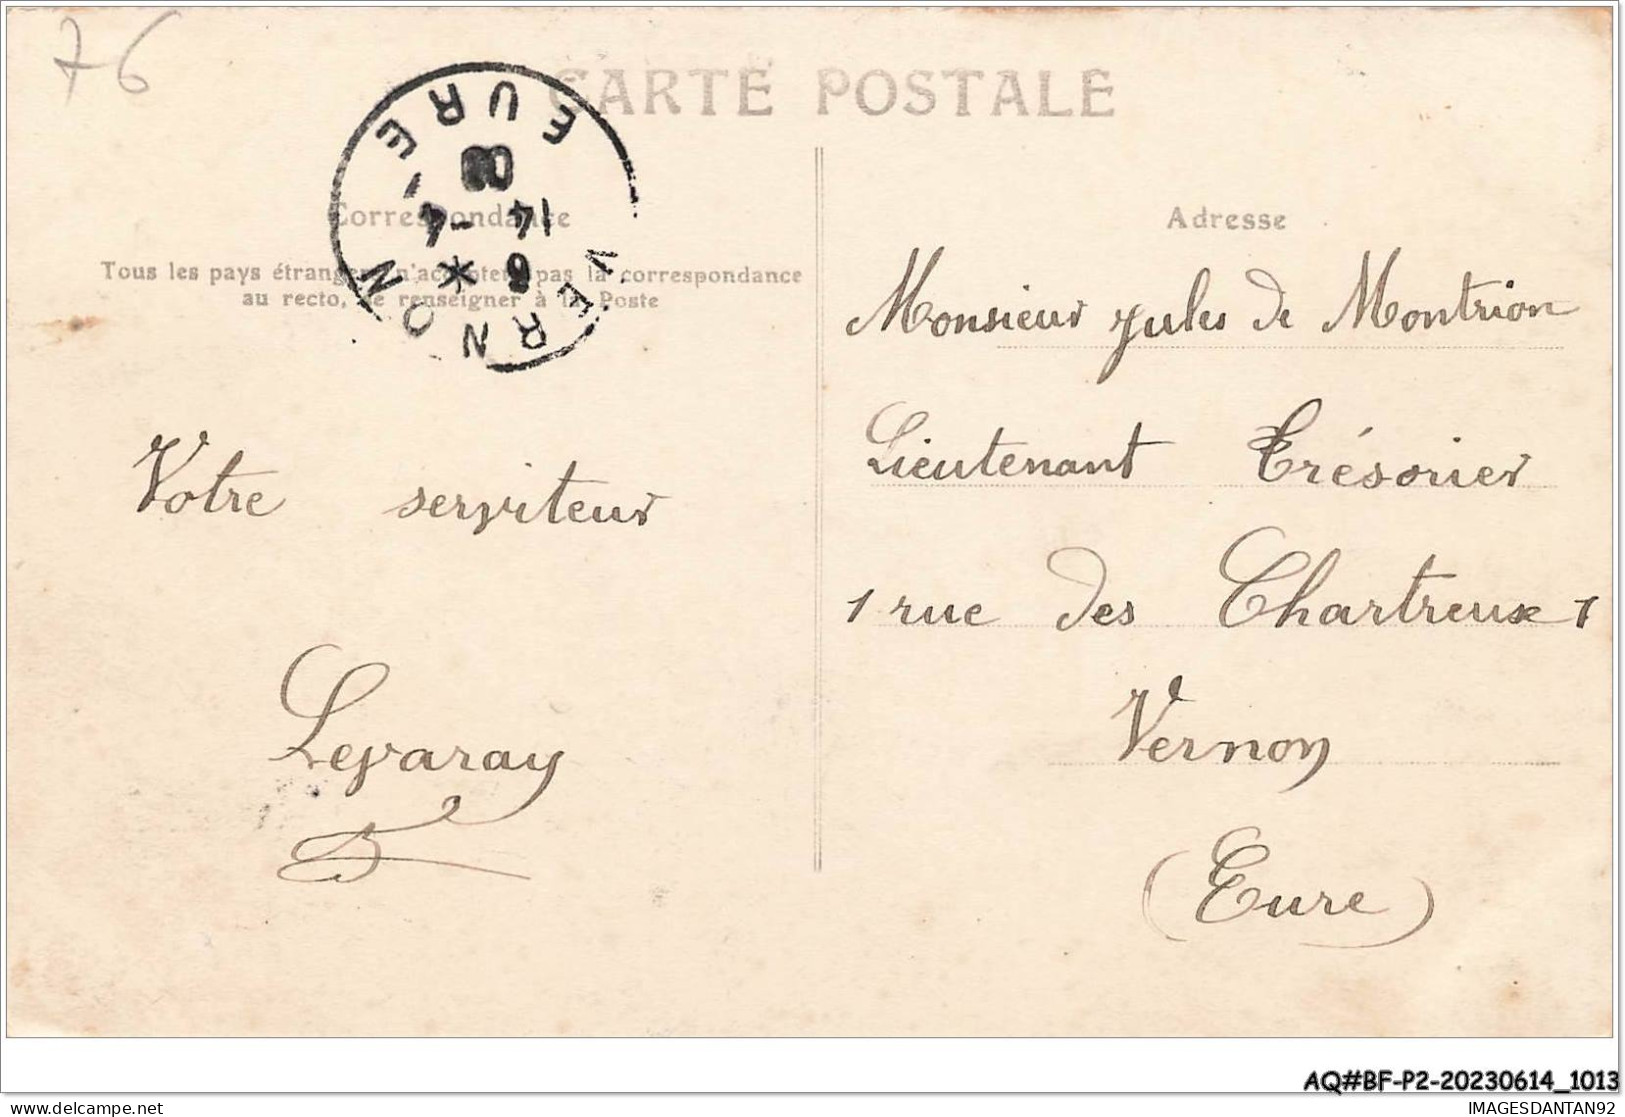 76
CARTE POSTALE
VERNON
EURE
6 *
14 -4
08
Correspondance
Tous les pays étrangers n'acceptent pas la correspondance
au recto, se renseigner à la Poste
Votre serviteur
Levaray
Adresse
Monsieur Jules de Montrion
Lieutenant Trésorier
1 rue des Chartreux 1
Vernon
(Eure)
AQ#BF-P2-20230614_1013
delcampe.net
IMAGESDANTAN92